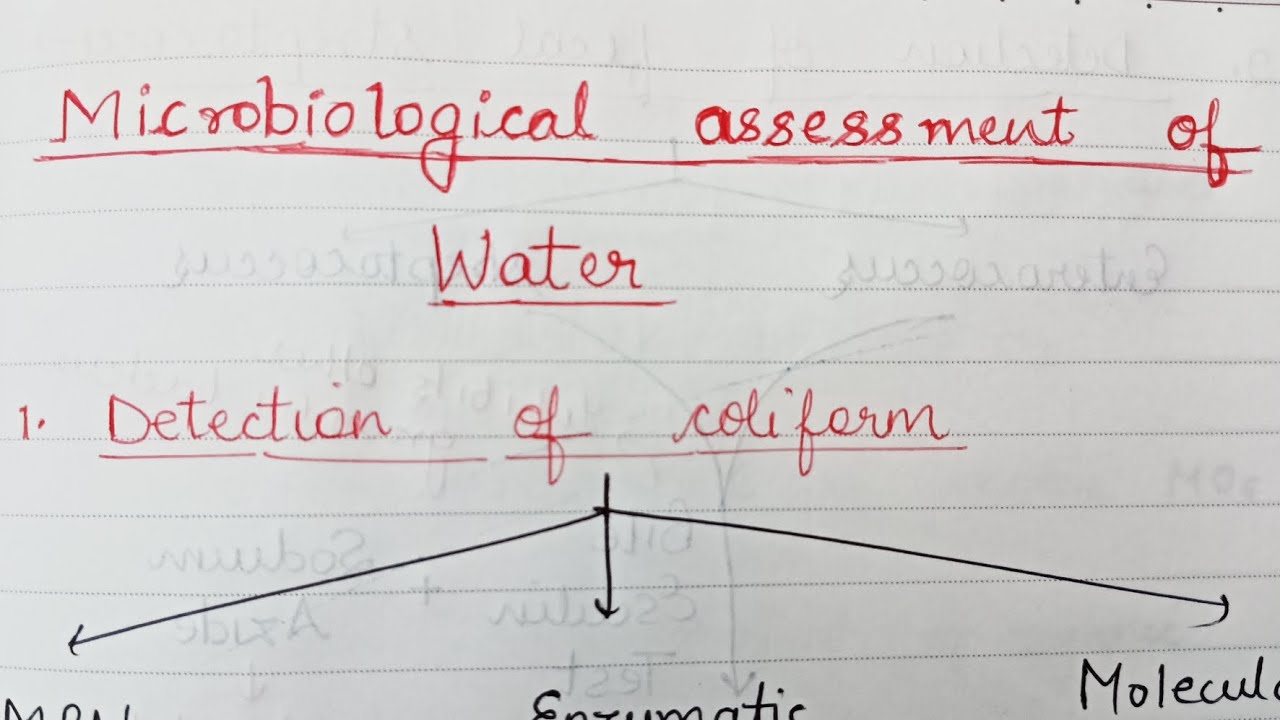 Microbiological assessment of
Water
1. Detection of coliform
MPN Enzymatic Molecula